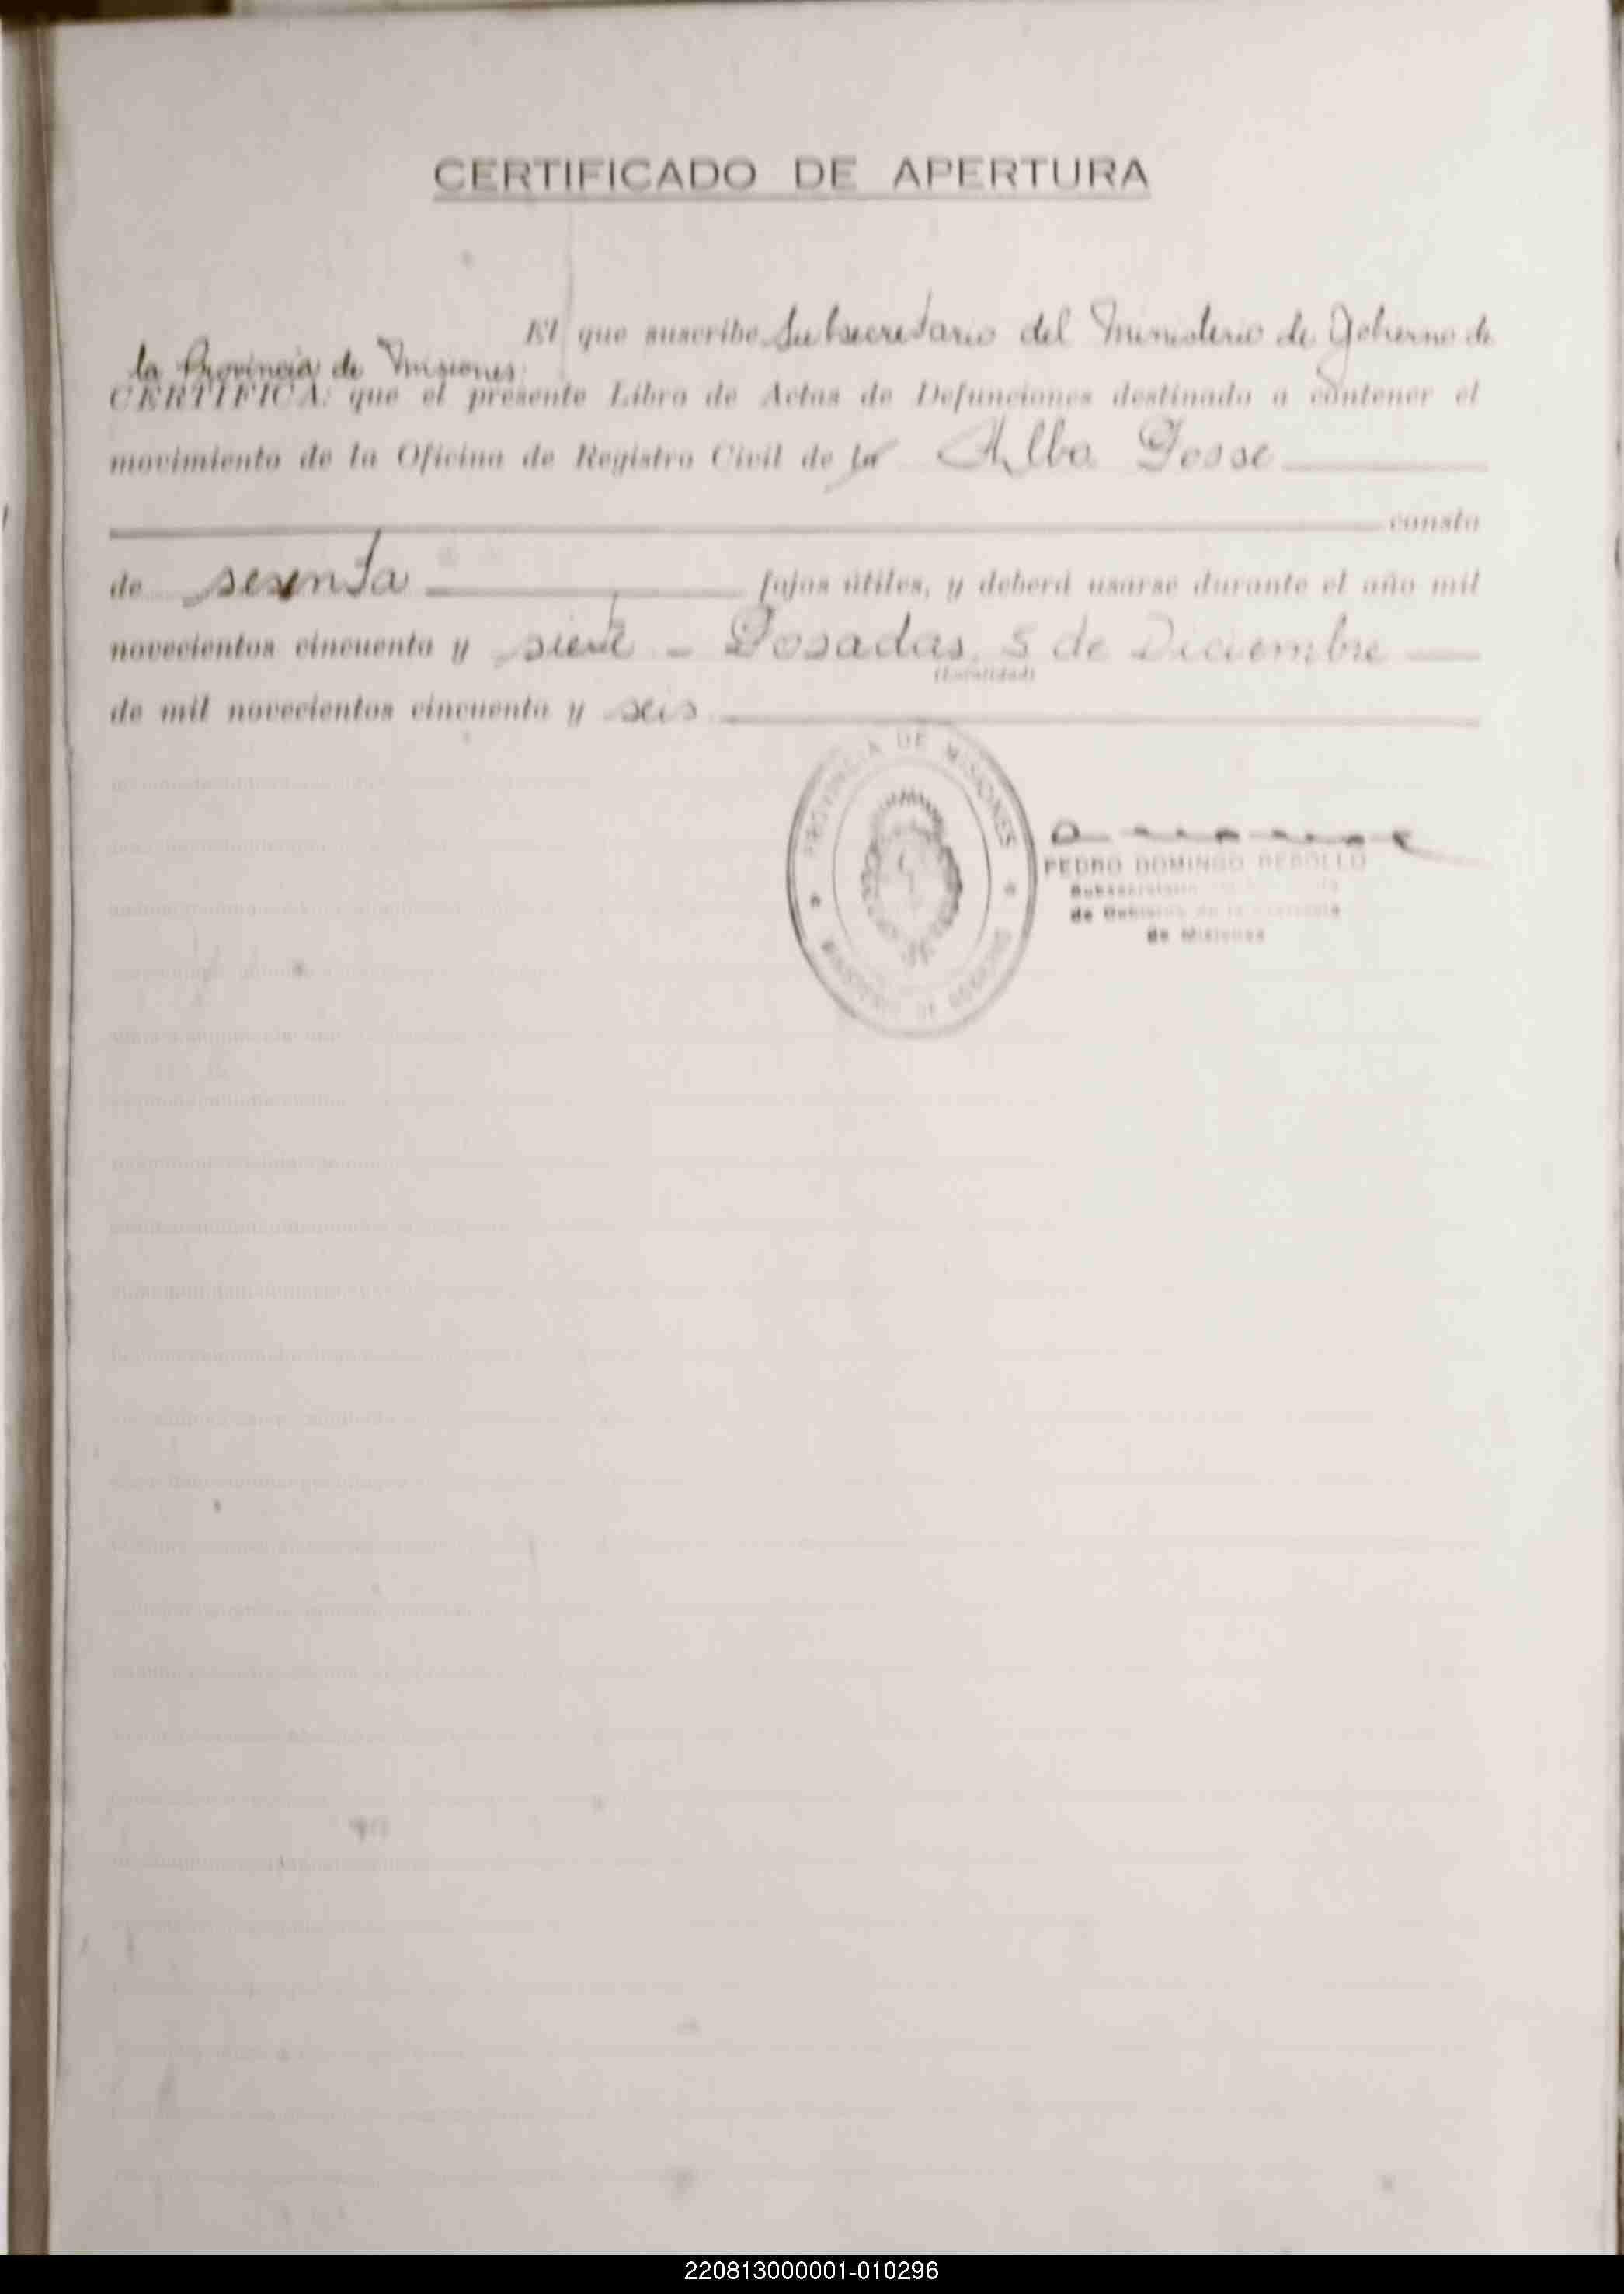 CERTIFICADO DE APERTURA
El que suscribe Subsecretario del Ministerio de Gobierno de
la Provincia de Misiones
CERTIFICA: que el presente Libro de Actas de Defunciones destinado a contener el
movimiento de la Oficina de Registro Civil de la Alba Posse
consta
de sesenta fojas útiles, y deberá usarse durante el año mil
novecientos cincuenta y siete - Posadas, 5 de Diciembre
(Localidad)
de mil novecientos cincuenta y seis
PROVINCIA DE MISIONES
MINISTERIO DE GOBIERNO
PEDRO DOMINGO REBOLLO
Subsecretario
de Gobierno de la Provincia
de Misiones
220813000001-010296